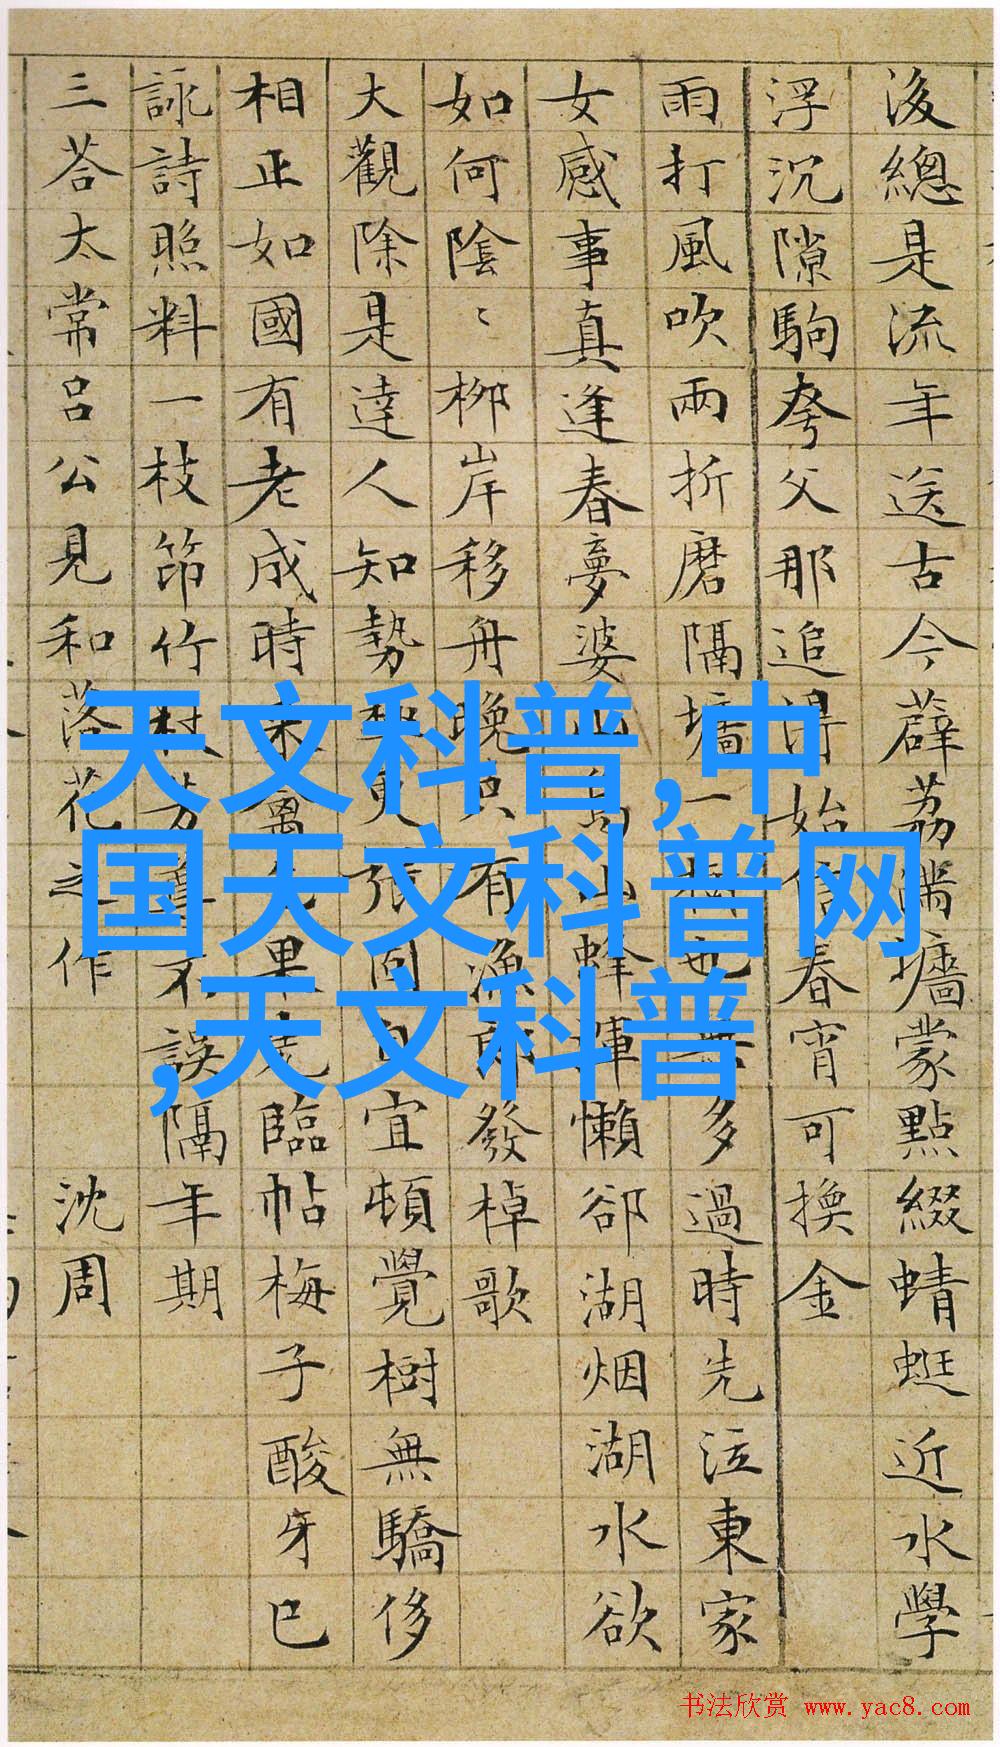 後總是流年送古今薜荔滿墻蒙點綴蜻蜓近水學
浮沉隙駒夸父那追得始信春宵可換金
雨打風吹兩折磨隔墻一樹也無多過時先泣東家
女感事真逢春夢婆山蜂揮懶卻湖烟湖水欲
如何陰〻柳岸移舟晚只有漁郎發棹歌
大觀除是達人知勢更張同自宜頓覺樹無驕侈
相正如國有老成時來禽果臨帖梅子酸牙已
詠詩照料一枝筇竹杖芳尊不誤隔年期
三荅太常呂公見和落花之作 沈周
天文科普,中
国天文科普网
,天文科普
书法欣赏 www.yac8.com